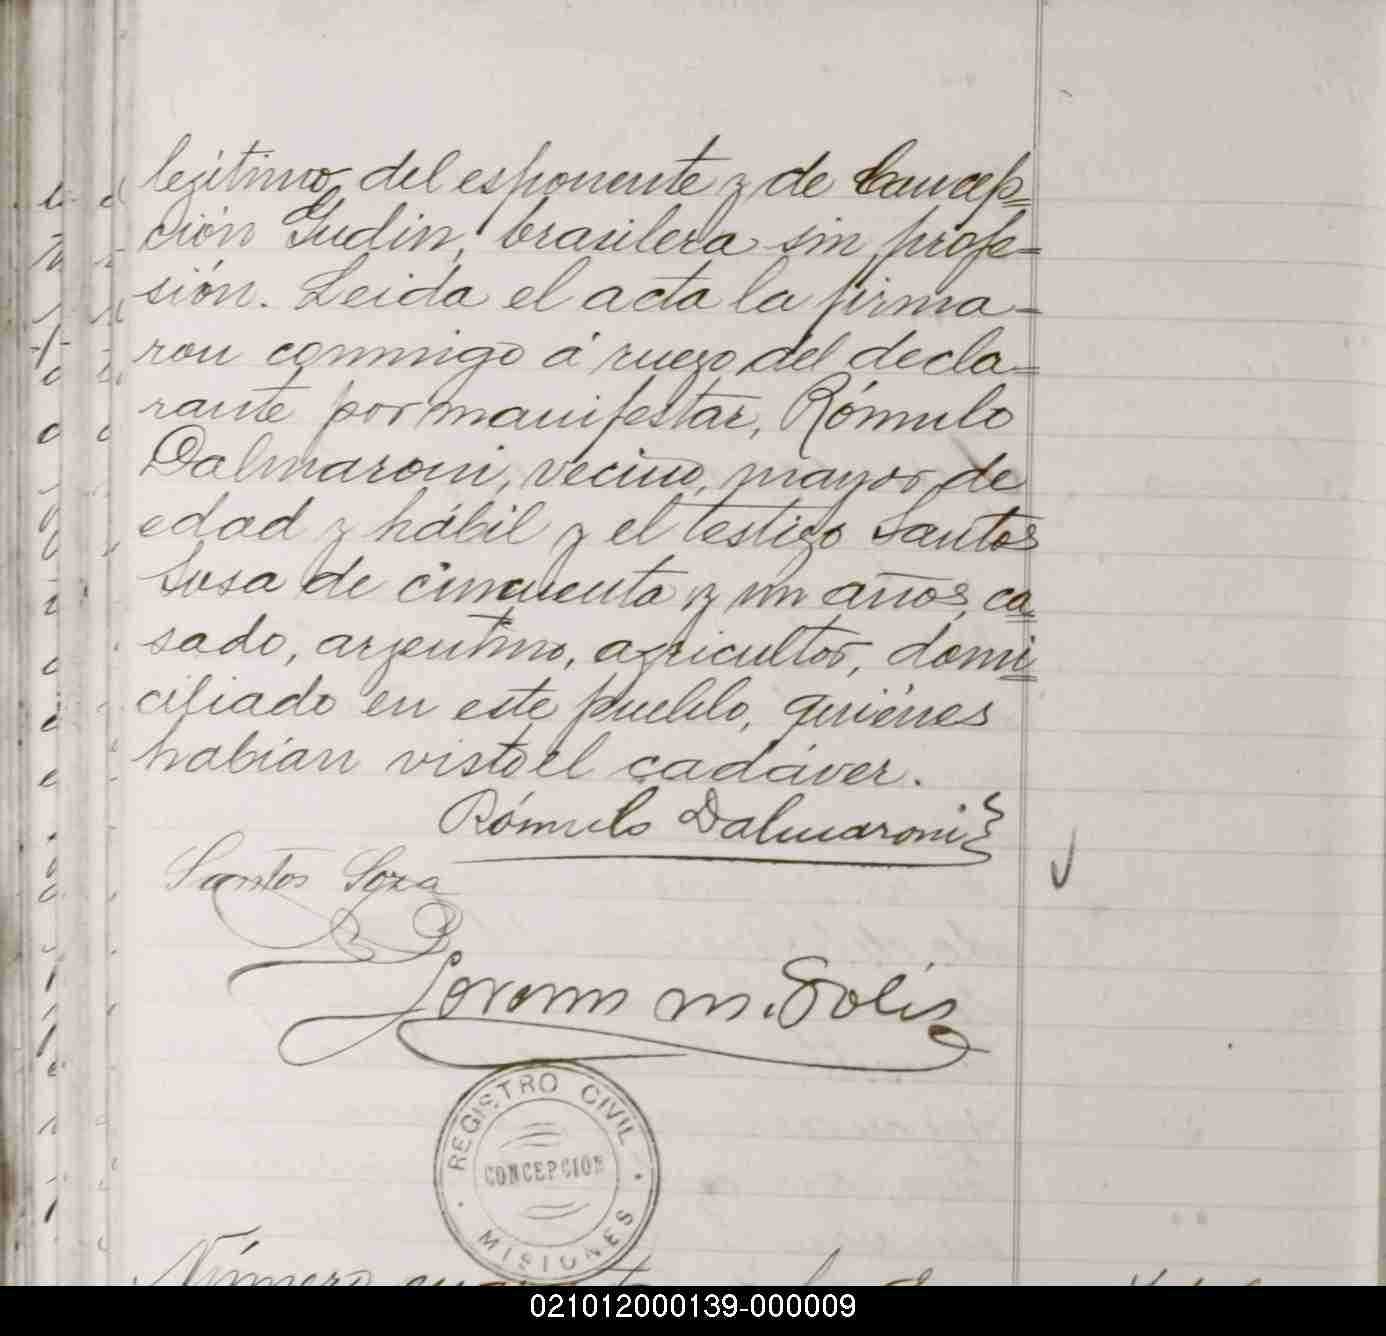 legítimo del esponente y de Concep=
ción Gudin, brasilera sin profe=
sión. Leida el acta la firma=
ron conmigo á ruego del decla=
rante por manifestar, Rómulo
Dalmaroni, vecino, mayor de
edad y hábil y el testigo Santos
Sosa de cincuenta y un años, ca=
sado, argentino, agricultor, domi=
ciliado en este pueblo, quiénes
habían visto el cadáver.
Rómulo Dalmaroni
Santos Soza
Lorenzo M. Solis
REGISTRO CIVIL
CONCEPCION
MISIONES
Número
021012000139-000009